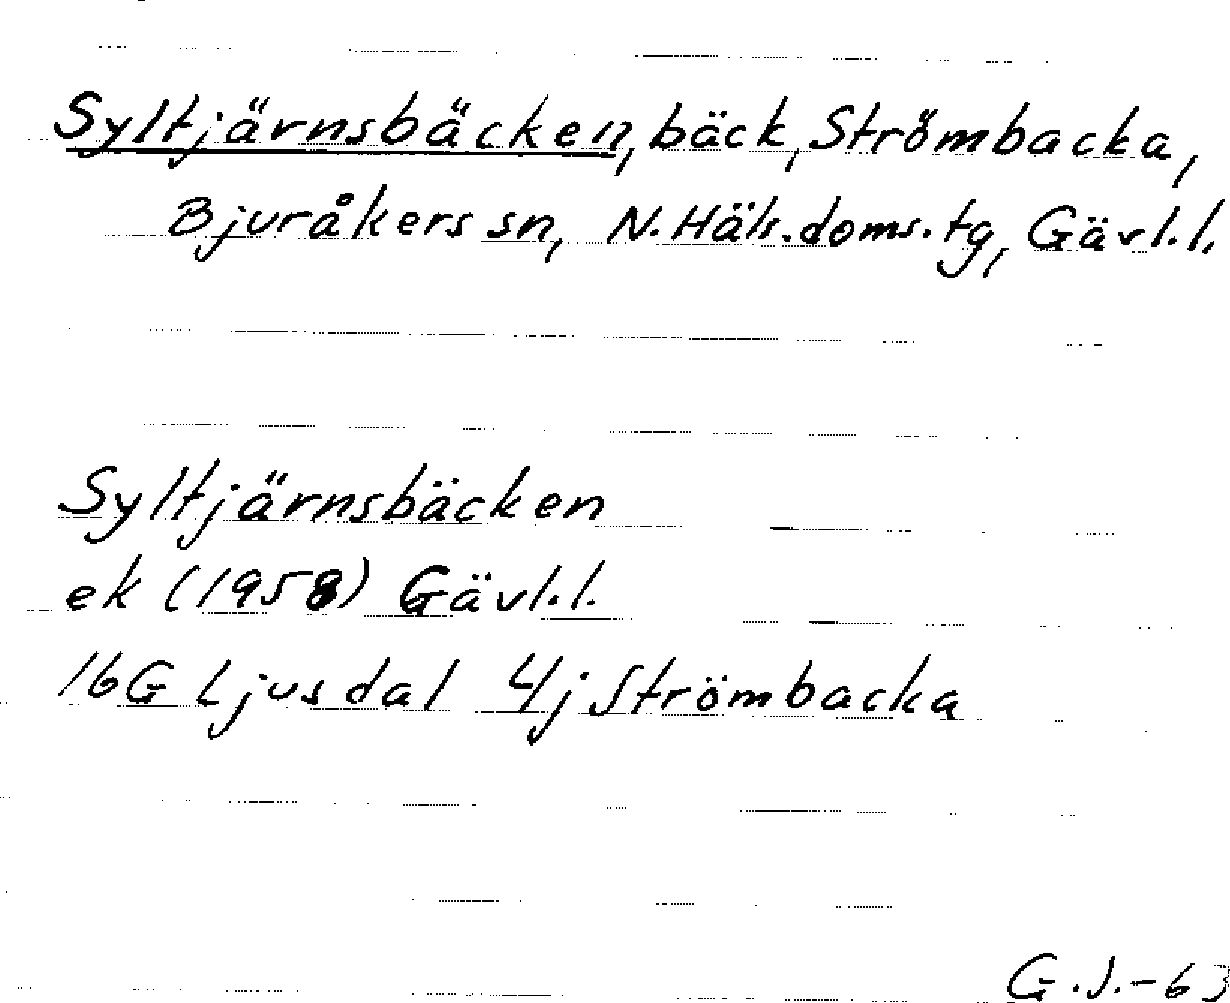 Syltjärnsbäcken, bäck, Strömbacka,
Bjuråkers sn, N. Häls. doms. tg, Gävl. l.
Syltjärnsbäcken
ek (1958) Gävl. l.
16G Ljusdal 4j Strömbacka
G. J. -63